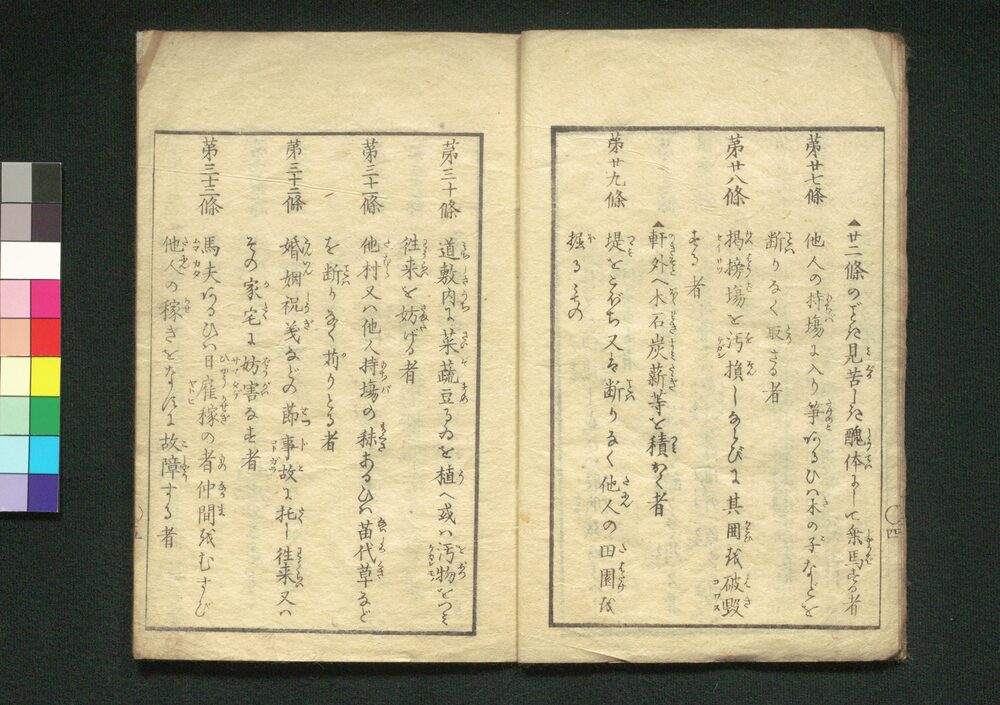 ▲廿二條のごとき見苦しき醜体にて乗馬する者
第廿七條
他人の持塲に入り筝あるひハ木の子などを
断りなく取さる者
第廿八條
掲榜塲を汚損しならびに其囲を破毀
する者
▲軒外へ木石炭薪等を積おく者
第廿九條
堤をこぼち又は断りなく他人の田園を
掘るもの
第三十條
道敷内に菜蔬豆るゐを植へ或ハ汚物をつミ
往来を妨げる者
第三十一條
他村又ハ他人持塲の秣あるひハ苗代草など
を断りなく苅りとる者
第三十二條
婚姻祝義などの節事故に托し往来又ハ
その家宅に妨害なす者
第三十三條
馬夫あるひハ日雇稼の者仲間をむすび
他人の稼きをなすに故障する者